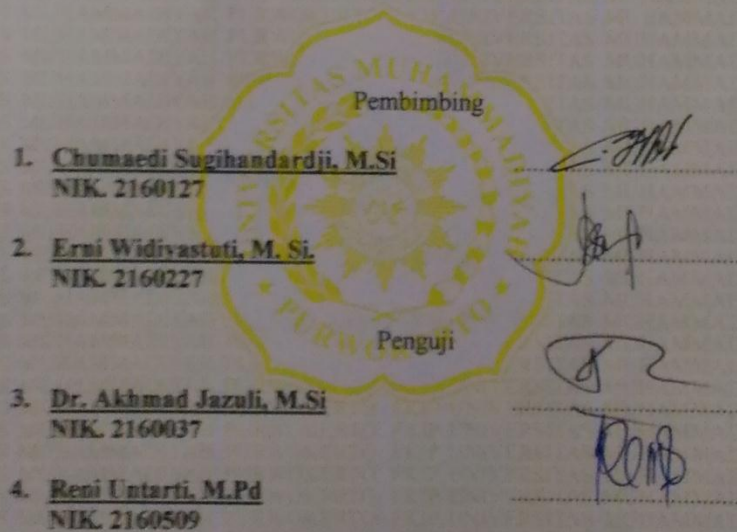 UNIVERSITAS MUHAMMADIYAH
Pembimbing
1. Chumaedi Sugihandardji, M.Si
NIK. 2160127
2. Erni Widiyastuti, M. Si.
NIK. 2160227
PURWOKERTO
Penguji
3. Dr. Akhmad Jazuli, M.Si
NIK. 2160037
4. Reni Untarti, M.Pd
NIK. 2160509